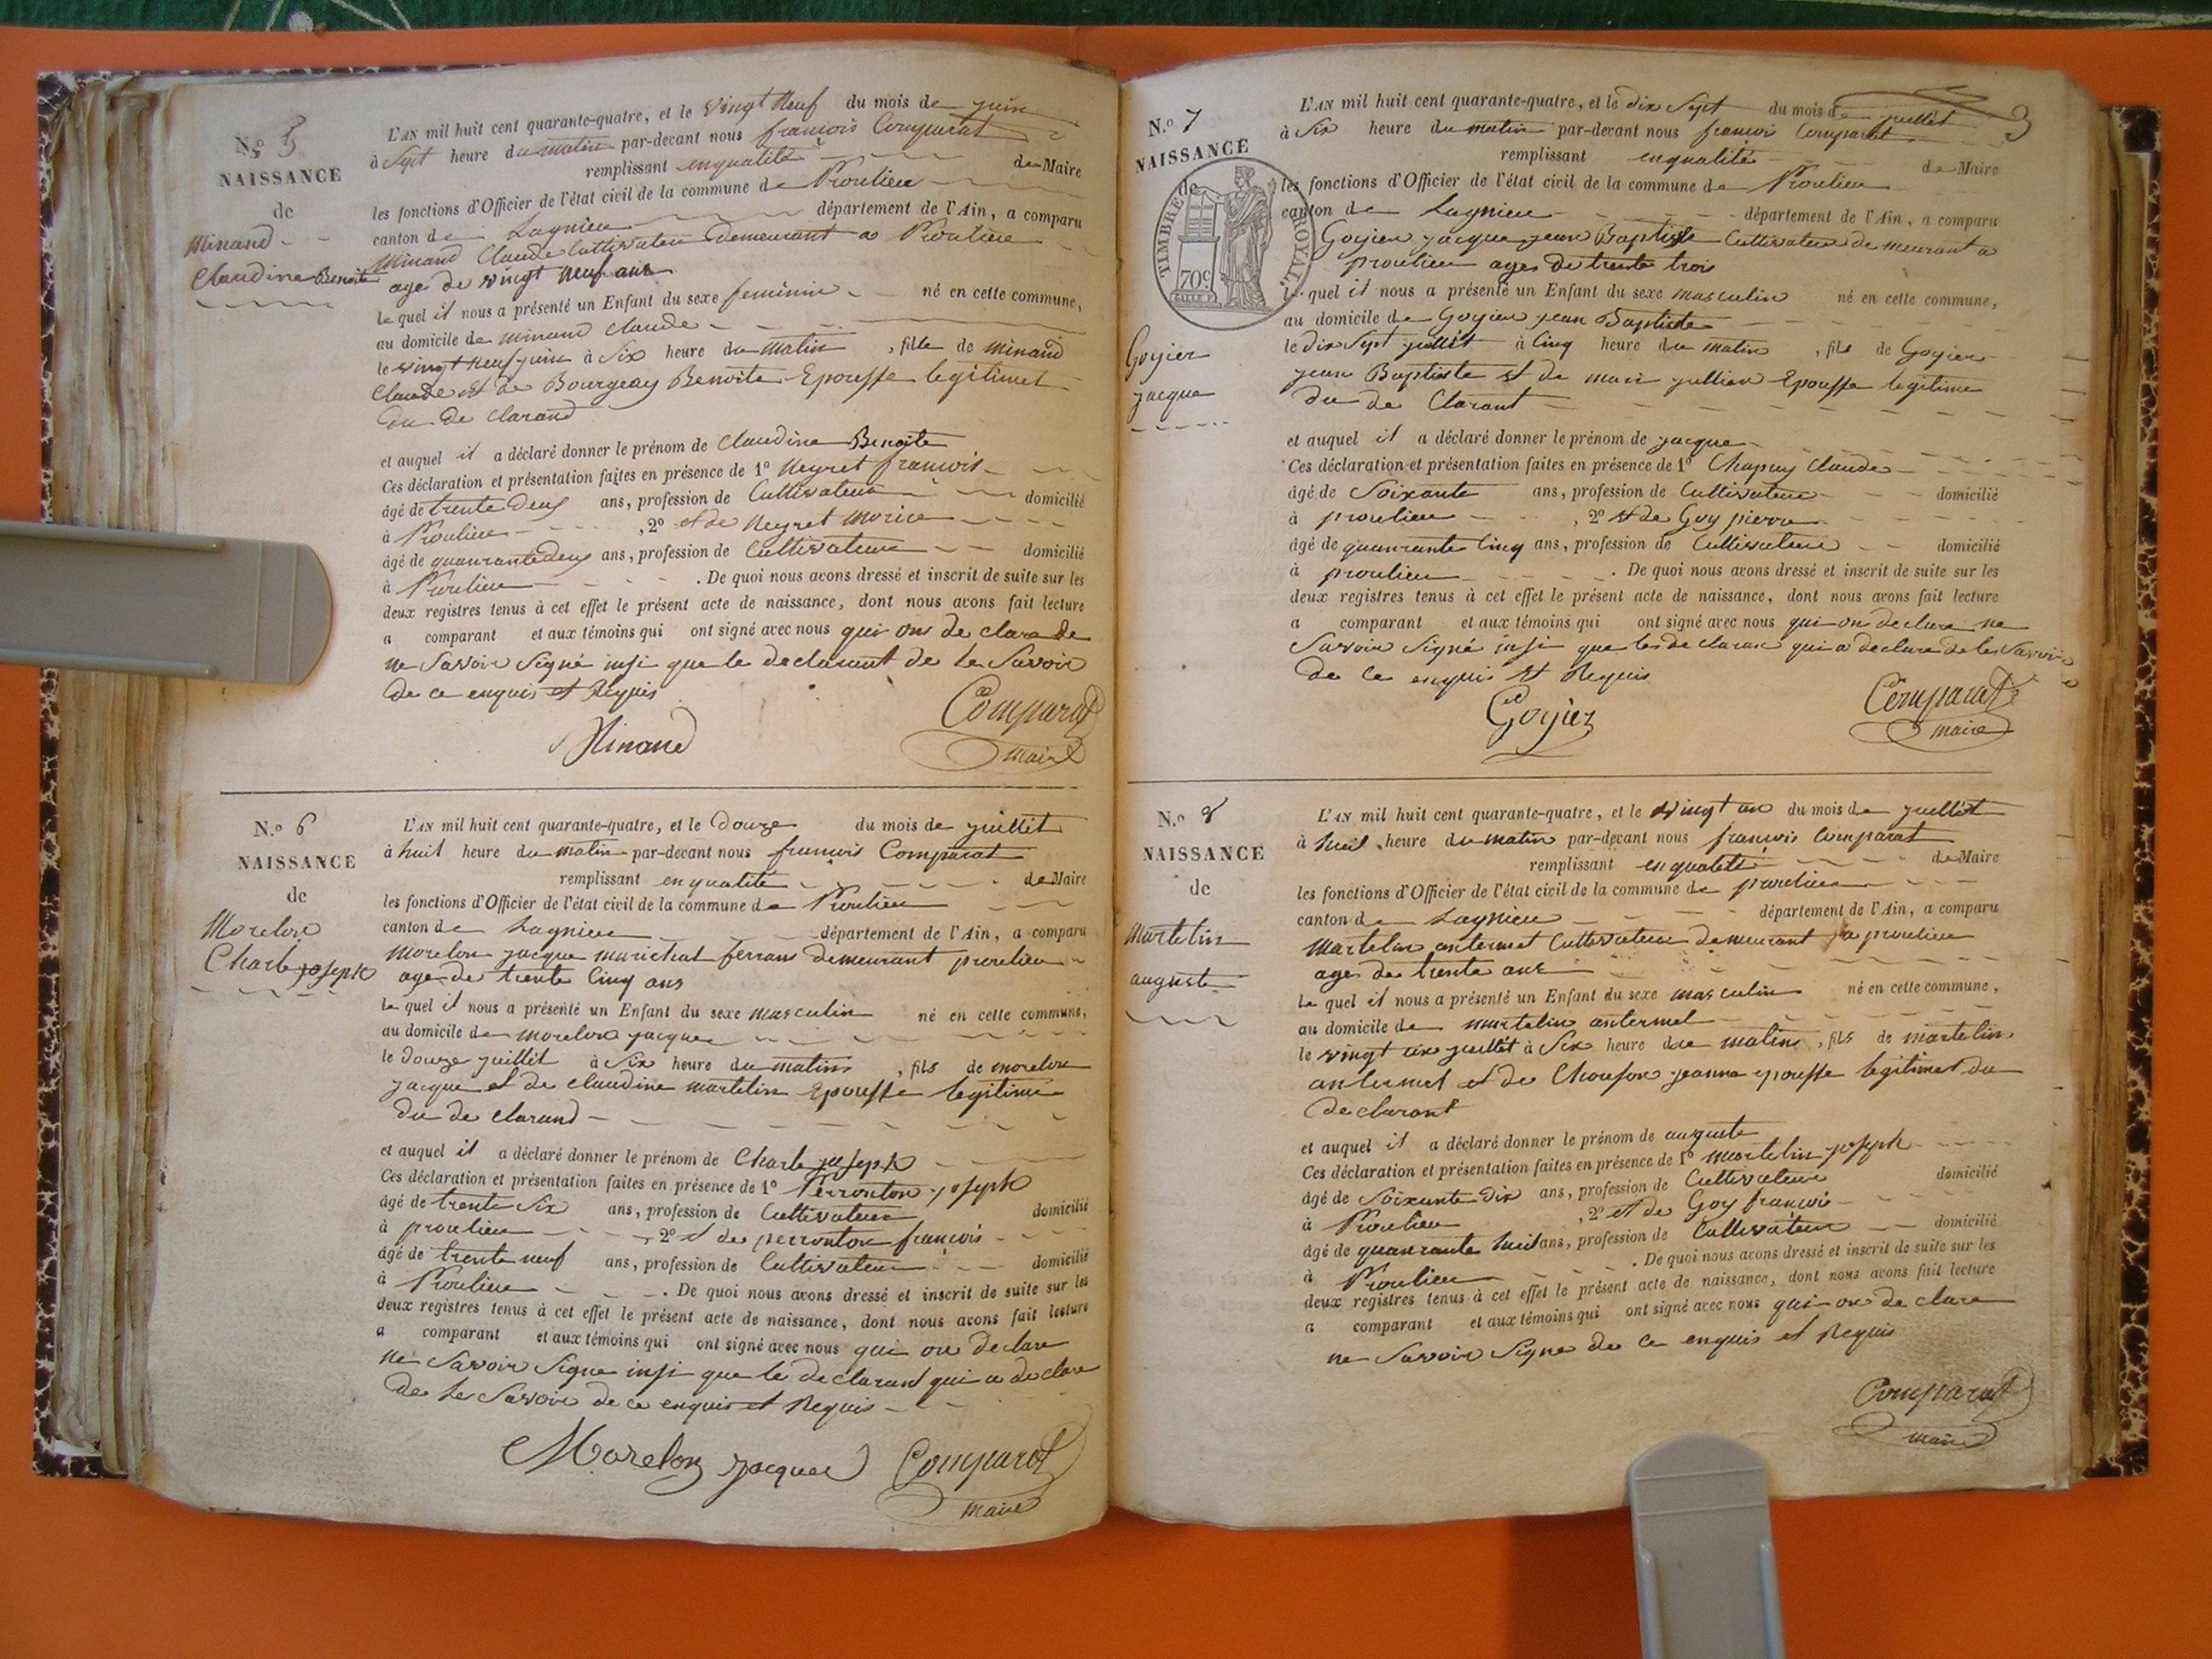 N.o 5
NAISSANCE
de
Minand
Claudine Benoite
L'AN mil huit cent quarante-quatre, et le vingt neuf du mois de juin
à Sept heure du matin par-devant nous francois Comparat
remplissant enqualité de Maire
les fonctions d'Officier de l'état civil de la commune de Proulieu
canton de Lagnieu département de l'Ain, a comparu
Minand Claude Cultivateur demeurant a Proulieu
agé de vingt neuf ans
le quel il nous a présenté un Enfant du sexe feminin né en cette commune,
au domicile de minand claude
le vingt neuf juin à Six heure du matin , fille de minand
claude et de Bourgeay Benoite Epousse legitimet
du de clarand
et auquel il a déclaré donner le prénom de Claudine Benoite
Ces déclaration et présentation faites en présence de 1o Neyret francois
âgé de trente deux ans, profession de Cultivateur domicilié
à Proulieu , 2o et de Neyret Morice
âgé de quanrante deux ans, profession de Cultivateur domicilié
à Proulieu . De quoi nous avons dressé et inscrit de suite sur les
deux registres tenus à cet effet le présent acte de naissance, dont nous avons fait lecture
a comparant et aux témoins qui ont signé avec nous qui ons de clare de
ne Savoir Signé insi que le declarant de le Savoir
de ce enquis et Requis
Minand Comparat
maire
N.o 6
NAISSANCE
de
Morelon
Charle joseph
L'AN mil huit cent quarante-quatre, et le Douze du mois de juillet
à huit heure du matin par-devant nous françois Comparat
remplissant enqualité de Maire
les fonctions d'Officier de l'état civil de la commune de Proulieu
canton de Lagnieu département de l'Ain, a comparu
morelon jacque marichat ferrans demeurant proulieu
age de trente Cinq ans
le quel il nous a présenté un Enfant du sexe masculin né en cette commune,
au domicile de morelon jacque
le douze juillet à Six heure du matin , fils de morelon
jacque et de claudine martelin Epousse legitime
du de clarand
et auquel il a déclaré donner le prénom de Charle joseph
Ces déclaration et présentation faites en présence de 1o Perronton joseph
âgé de trente Six ans, profession de Cultivateur domicilié
à proulieu , 2o et de perronton françois
âgé de trente neuf ans, profession de Cultivateur domicilié
à Proulieu . De quoi nous avons dressé et inscrit de suite sur les
deux registres tenus à cet effet le présent acte de naissance, dont nous avons fait lecture
a comparant et aux témoins qui ont signé avec nous qui on declare
ne Savoir Signe insi que le declarant qui a declare
de le Savoir de ce enquis et Requis
Morelon jacque Comparat
maire
N.o 7
NAISSANCE
de
TIMBRE ROYAL
70c
Goyier
jacque
3
L'AN mil huit cent quarante-quatre, et le dix Sept du mois de juillet
à Six heure du matin par-devant nous françois Comparat
remplissant enqualité de Maire
les fonctions d'Officier de l'état civil de la commune de Proulieu
canton de Lagnieu département de l'Ain, a comparu
Goyier jacque jean Baptiste Cultivateur demeurant a
proulieu ages de trente trois
le quel il nous a présenté un Enfant du sexe masculin né en cette commune,
au domicile de Goyier jean Baptiste
le dix Sept juillet à Cinq heure du matin , fils de Goyier
jean Baptiste et de mari jullian Epousse legitime
du de Clarant
et auquel il a déclaré donner le prénom de jacque
Ces déclaration et présentation faites en présence de 1o Chapuy Claude
âgé de Soixante ans, profession de Cultivateur domicilié
à proulieu , 2o et de Goy pierre
âgé de quanrante Cinq ans, profession de Cultivateur domicilié
à proulieu . De quoi nous avons dressé et inscrit de suite sur les
deux registres tenus à cet effet le présent acte de naissance, dont nous avons fait lecture
a comparant et aux témoins qui ont signé avec nous qui on declare ne
Savoir Signé insi que les de claran qui a declare de les Savoir
de ce enquis et Requis
Goyier Comparat
maire
N.o 8
NAISSANCE
de
Martelin
auguste
L'AN mil huit cent quarante-quatre, et le vingt un du mois de juillet
à huit heure du matin par-devant nous françois Comparat
remplissant enqualité de Maire
les fonctions d'Officier de l'état civil de la commune de proulieu
canton de Lagnieu département de l'Ain, a comparu
Martelin antermet Cultivateur demeurant a proulieu
ages de trente ans
le quel il nous a présenté un Enfant du sexe masculin né en cette commune,
au domicile de martelin antermet
le vingt un juillet à Six heure du matin , fils de martelin
antermet et de Chouson jeanne epousse legitimet du
declarant
et auquel il a déclaré donner le prénom de auguste
Ces déclaration et présentation faites en présence de 1o martelin joseph
âgé de Soixante dix ans, profession de Cultivateur domicilié
à Proulieu , 2o et de Goy françois
âgé de quanrante huit ans, profession de Cultivateur domicilié
à Proulieu . De quoi nous avons dressé et inscrit de suite sur les
deux registres tenus à cet effet le présent acte de naissance, dont nous avons fait lecture
a comparant et aux témoins qui ont signé avec nous qui on de clare
ne Savoir Signe de ce enquis et Requis
Comparat
maire